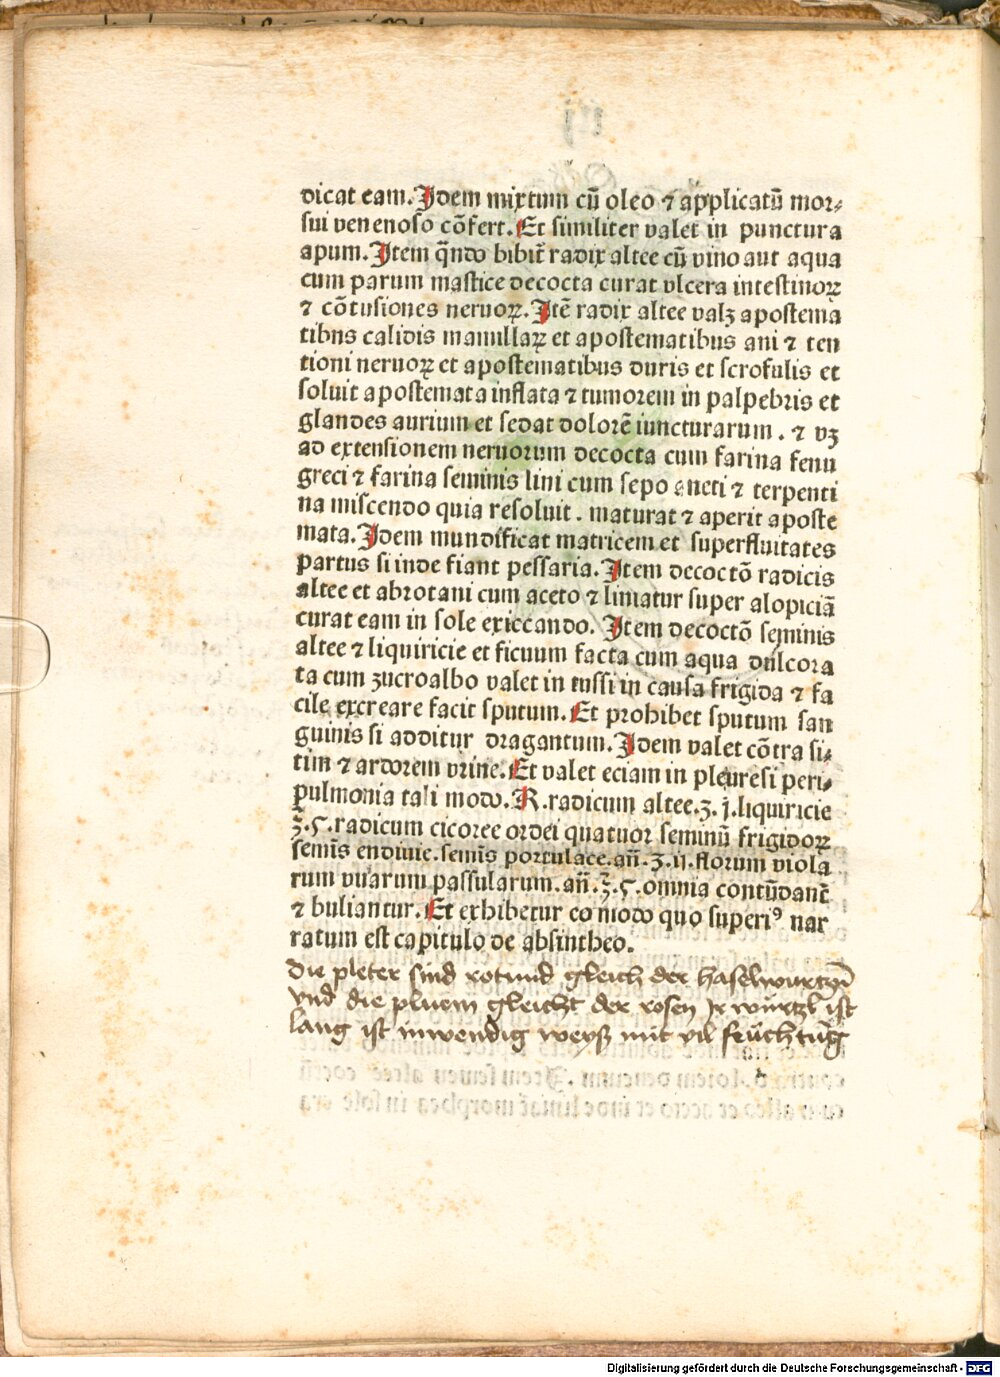 dicat eam. Idem mixtum cū oleo ⁊ applicatū mor⸗
sui venenoso cōfert. Et similiter valet in punctura
apum. Item qn̄do bibit̄ radix altee cū vino aut aqua
cum parum mastice decocta curat vlcera intestinoꝝ
⁊ cōtusiones neruoꝝ. Itē radix altee valꝫ apostema
tibns calidis mamillaꝝ et apostematibus ani ⁊ ten
tioni neruoꝝ et apostematibus duris et scrofulis et
soluit apostemata inflata ⁊ tumorem in palpebris et
glandes aurium et sedat dolorē iuncturarum . ⁊ vꝫ
ad extensionem neruorum decocta cum farina fenu
greci ⁊ farina seminis lini cum sepo aneti ⁊ terpenti
na miscendo quia resoluit . maturat ⁊ aperit aposte
mata. Idem mundificat matricem et superfluitates
partus si inde fiant pessaria. Item decoctō radicis
altee et abrotani cum aceto ⁊ liniatur super alopiciā
curat eam in sole exiccando. Item decoctō seminis
altee ⁊ liquiricie et ficuum facta cum aqua dulcora
ta cum zucroalbo valet in tussi in causa frigida ⁊ fa
cile excreare facit sputum. Et prohibet sputum san
guinis si additur dragantum. Idem valet cōtra si⸗
tim ⁊ ardorem vrine. Et valet eciam in pleuresi peri⸗
pulmonia tali modo. R. radicum altee. ʒ. j. liquiricie
ʒ. ꞔ. radicum cicoree ordei quatuor seminū frigidoꝝ
semīs endiuie. semīs portulace. an̄. ʒ. ij. florum viola
rum vuarum passularum. an̄. ʒ. ꞔ. omnia contūdant̄
⁊ buliantur. Et exhibetur eo modo quo superiꝰ nar
ratum est capitulo de absintheo.
die pleter sind rotund gleich der haselwurtzn̄
vnd die pluem gleicht der rosen Ir würtzl ist
lang ist inwendig weyß mit vil feüchtūg
Digitalisierung gefördert durch die Deutsche Forschungsgemeinschaft - DFG